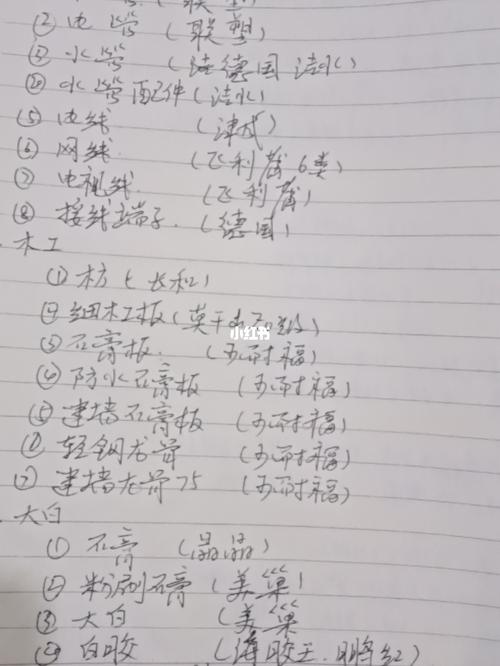 ② 电管 (联塑)
③ 水管 (洁德国洁水)
④ 水管配件 (洁水)
⑤ 电线 (津成)
⑥ 网线 (飞利蒲 6类)
⑦ 电视线 (飞利蒲)
⑧ 接线端子. (德国)
木工
① 木方 (长和)
② 细木工板 (莫干山
小红书
③ 石膏板. (可耐福)
④ 防水石膏板 (可耐福)
⑤ 建墙石膏板 (可耐福)
⑥ 轻钢龙骨 (可耐福)
⑦ 建墙龙骨75 (可耐福)
大白
① 石膏 (晶晶)
② 粉刷石膏 (美巢)
③ 大白 (美巢
④ 白胶